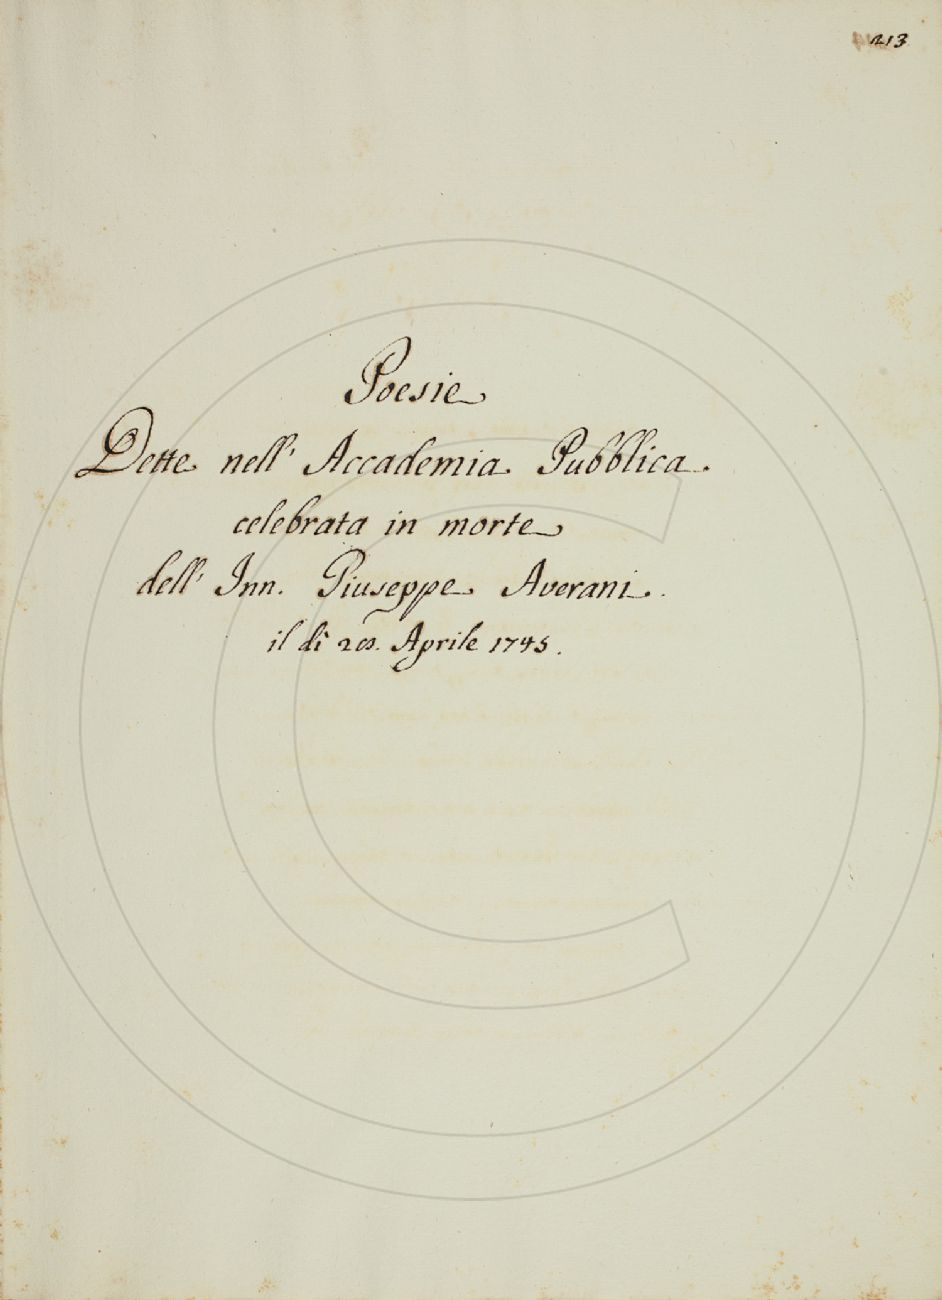 213
Poesie
Dette nell' Accademia Pubblica
celebrata in morte
dell' Inn. Giuseppe Averani.
il dì Aprile 1745.